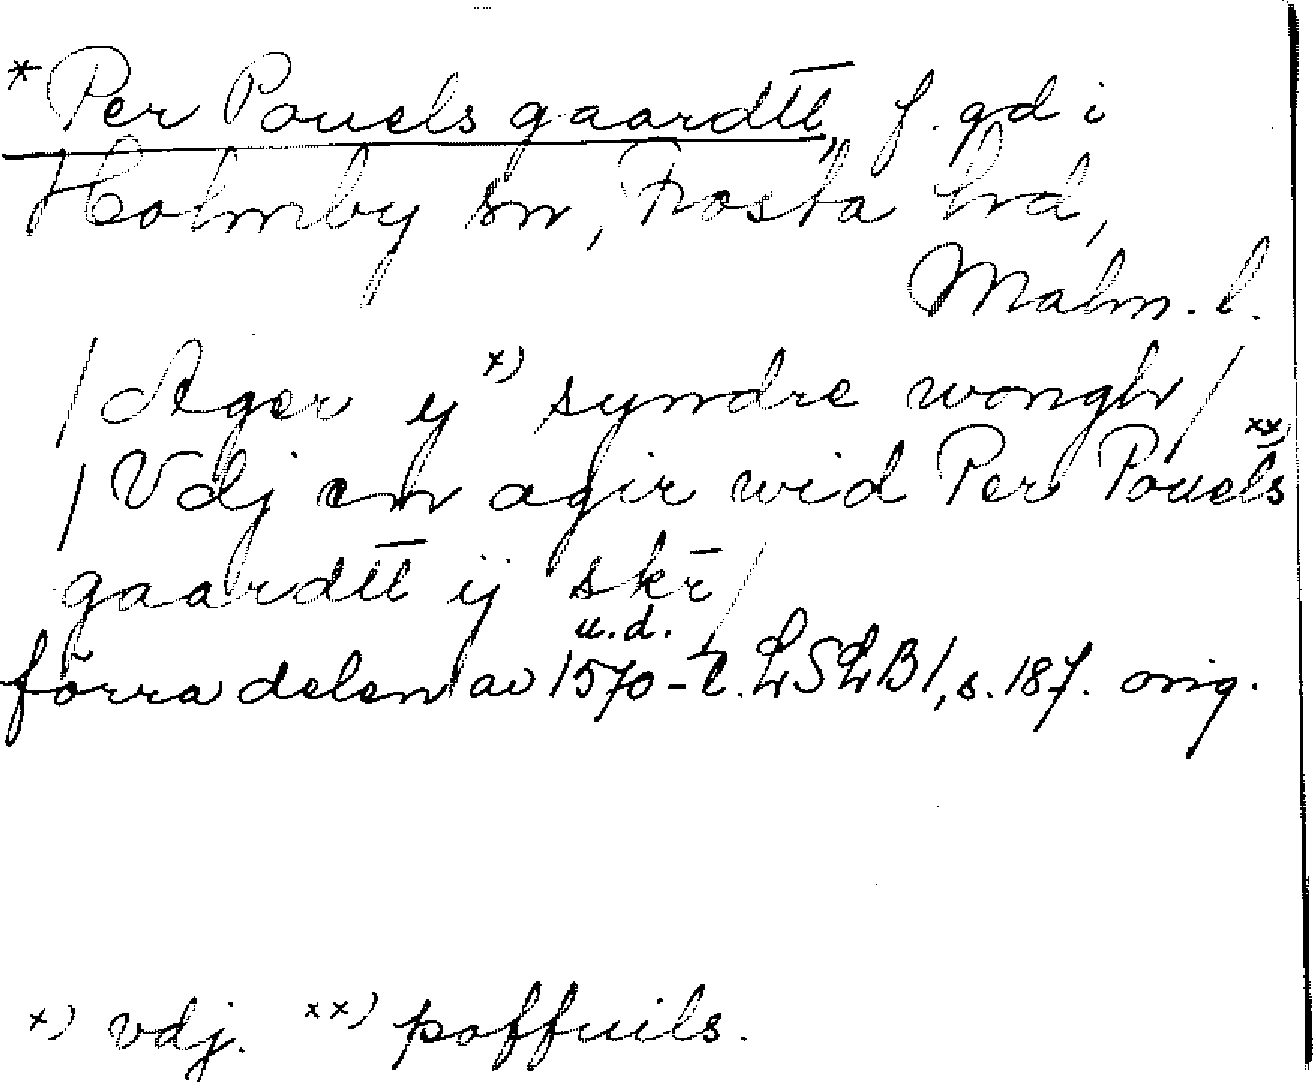 * Per Pouels gaardtt, f. gd i
Holmby sn, Frosta hrd,
Malm. l.
/ Ager y x) syndre wongh /
/ Vdj en agir wid Per Pouels xx)
gaardtt ij skr̄ /
u.d.
förra delen av 1570-t. LSLB1, s. 187. orig.
x) vdj. xx) poffuils.